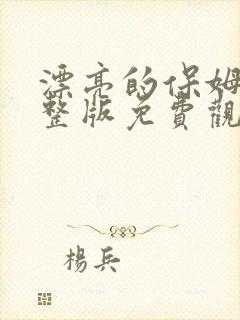 漂亮的保姆
整版免費觀
楊兵